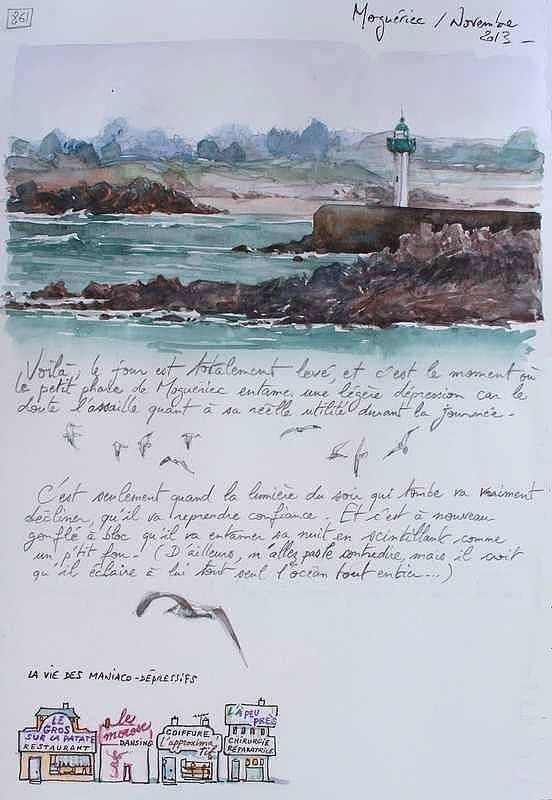 861
Moguériec / Novembre
2013
Voilà, le jour est totalement levé, et c'est le moment où
le petit phare de Moguériec entame une légère dépression car le
doute l'assaille quant à sa réelle utilité durant la journée.
C'est seulement quand la lumière du soir qui tombe va vraiment
décliner, qu'il va reprendre confiance. Et c'est à nouveau
gonflé à bloc qu'il va entamer sa nuit en scintillant comme
un p'tit fou. (D'ailleurs, n'allez pas le contredire, mais il croit
qu'il éclaire à lui tout seul l'océan tout entier...)
LA VIE DES MANIACO-DÉPRESSIFS
LE GROS SUR LA PATATE
RESTAURANT
le morose
DANSING
COIFFURE
l'approxima tif
L'À PEU PRÈS
CHIRURGIE
RÉPARATRICE